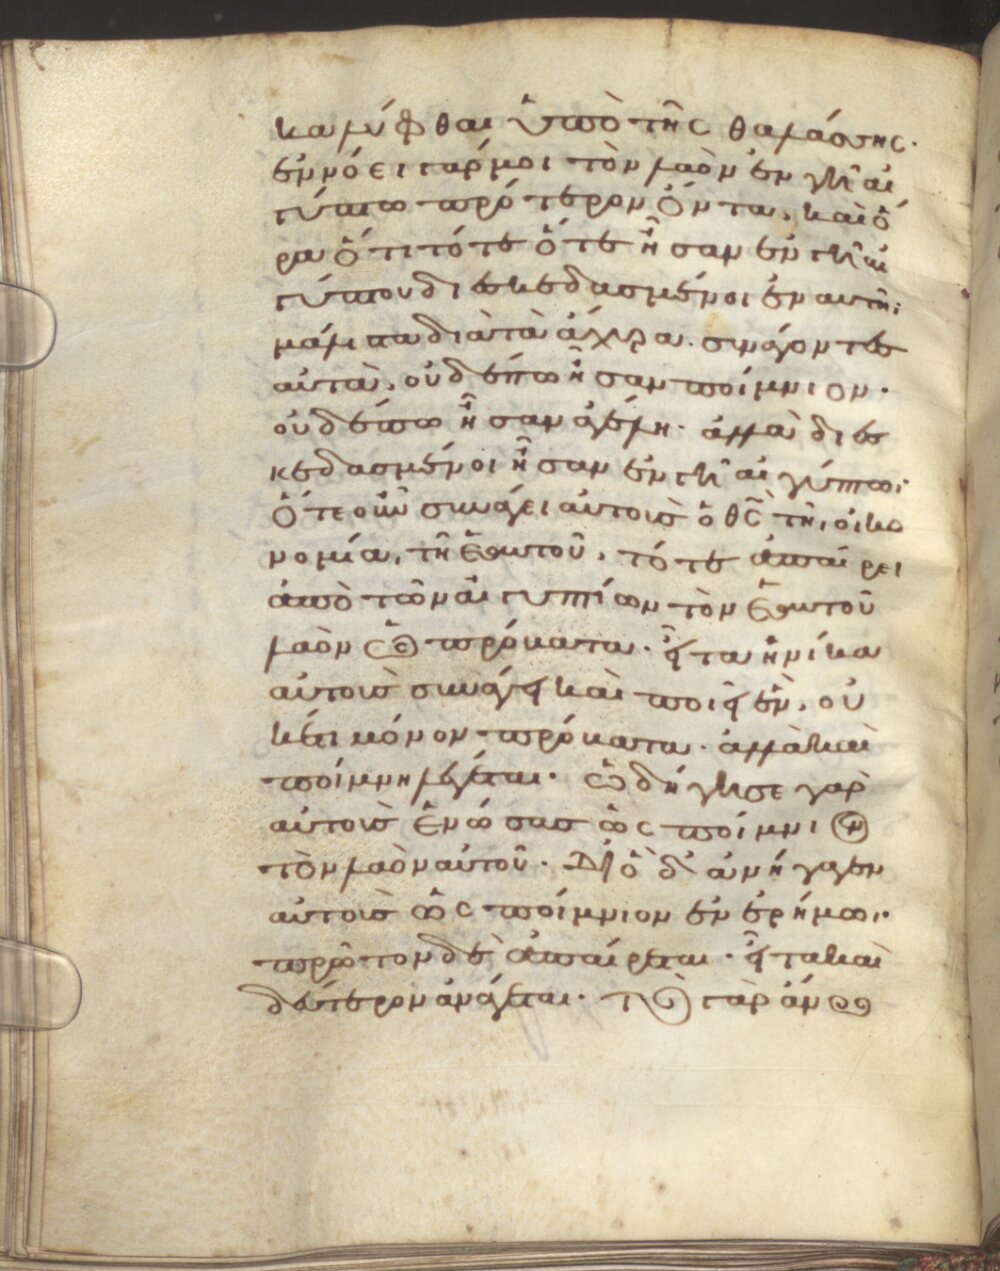 καλυφθαι ὑπὸ τῆς θαλάσσης·
ἐννόει γάρ μοι τὸν λαὸν ἐν γῆ αἰ
γύπτω πρότερον ὄντα, καὶ ὅ
ρα ὅτι τότε ὅτε ἦσαν ἐν γῆ αἰ
γύπτου διεσκεδασμένοι ἐν αυτῆ·
μάλιστα διὰ τὰ ἄχυρα. συνάγοντες
αὐτὰ, οὐδέπω ἦσαν ποίμνιον·
οὐδέπω ἦσαν ἀγέλη· ἀλλὰ διε
σκεδασμένοι ἦσαν ἐν γῆ αἰγύπτω·
ὅτε οὖν συνάγει αὐτοὺς ὁ θς τῆ οἰκο
νομία, τῆ ἑαυτοῦ, τότε ἀπαίρει
ἀπὸ τῶν αἰγυπτίων τὸν ἑαυτοῦ
λαὸν ὡς πρόβατα· εἶτα ἡνίκα
αὐτοὺς συνάγει καὶ ποιεῖ ἓν, οὐ
κέτι μόνον πρόβατα· ἀλλὰ καὶ
ποίμνη λέγεται· ὡδήγησε γὰρ
αὐτοὺς ἑνώσας ὡς ποίμνιον
τὸν λαὸν αὐτοῦ· διὸ δὲ ἀνήγαγεν
αὐτοὺς ὡς ποίμνιον ἐν ἐρήμω·
πρῶτον δὲ ἀπαίρεται· εἶτα καὶ
δεύτερον ἀνάγεται· γὰρ